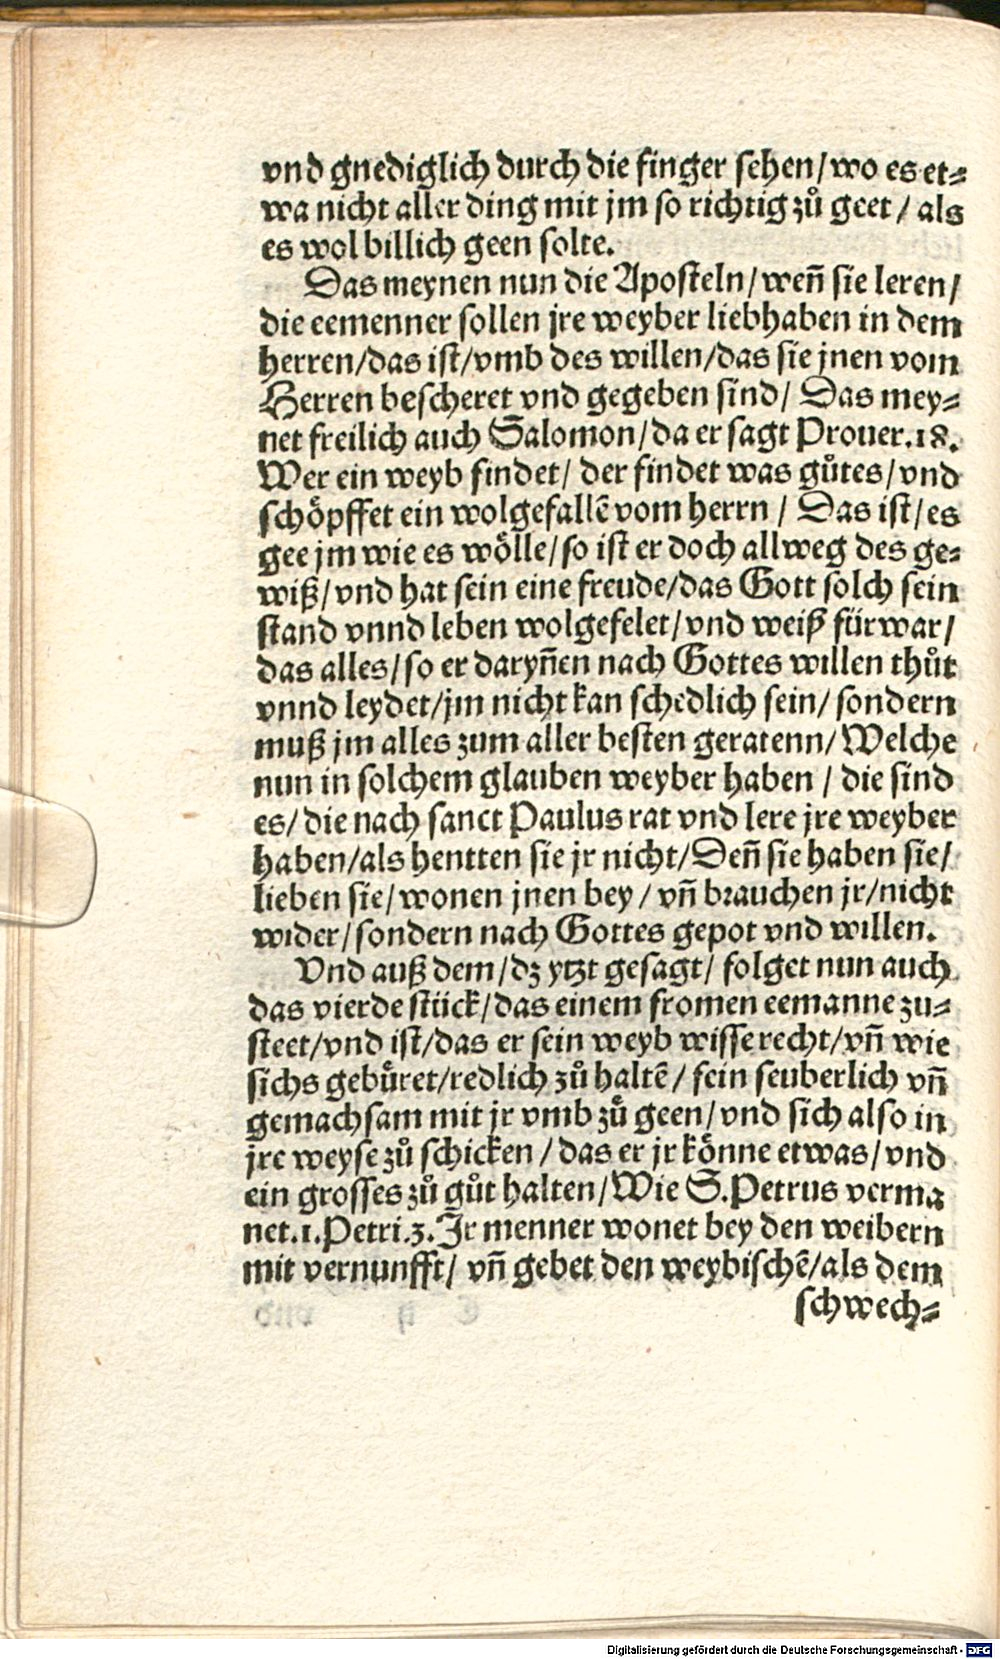 vnd gnediglich durch die finger sehen/wo es et⸗
wa nicht aller ding mit jm so richtig zů geet / als
es wol billich geen solte.
Das meynen nun die Aposteln/weñ sie leren/
die eemenner sollen jre weyber liebhaben in dem
herren/das ist/vmb des willen/das sie jnen vom
Herren bescheret vnd gegeben sind/ Das mey⸗
net freilich auch Salomon/da er sagt Prouer.18.
Wer ein weyb findet/ der findet was gůtes/vnd
schöpffet ein wolgefallẽ vom herrn / Das ist/es
gee jm wie es wölle/so ist er doch allweg des ge⸗
wiß/vnd hat sein eine freude/das Gott solch sein
stand vnnd leben wolgefelet/vnd weiß fürwar/
das alles/so er daryñen nach Gottes willen thůt
vnnd leydet/jm nicht kan schedlich sein/ sondern
muß jm alles zum aller besten geratenn/Welche
nun in solchem glauben weyber haben / die sind
es/die nach sanct Paulus rat vnd lere jre weyber
haben/als hentten sie jr nicht/Deñ sie haben sie/
lieben sie/wonen jnen bey / vñ brauchen jr/nicht
wider/sondern nach Gottes gepot vnd willen.
Vnd auß dem/dz ytzt gesagt/ folget nun auch
das vierde stück/das einem fromen eemanne zu⸗
steet/vnd ist/das er sein weyb wisse recht/vñ wie
sichs gebüret/redlich zů haltẽ / fein seuberlich vñ
gemachsam mit jr vmb zů geen/vnd sich also in
jre weyse zů schicken / das er jr könne etwas/vnd
ein grosses zů gůt halten/Wie S.Petrus verma⸗
net.1.Petri.3.Jr menner wonet bey den weibern
mit vernunfft/ vñ gebet den weybischẽ/als dem
schwech⸗
Digitalisierung gefördert durch die Deutsche Forschungsgemeinschaft - DFG